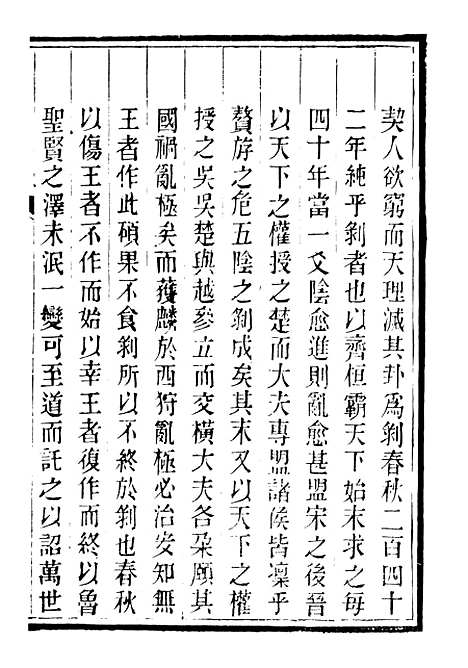 契人欲窮而天理滅其卦爲剝春秋二百四十
二年純乎剝者也以齊桓霸天下始末求之每
四十年當一爻陰愈進則亂愈甚盟宋之後晉
以天下之權授之楚而大夫專盟諸侯皆凜乎
贅斿之危五陰之剝成矣其末又以天下之權
授之吳吳楚與越參立而交橫大夫各朶頤其
國禍亂極矣而獲麟於西狩亂極必治安知無
王者作此碩果不食剝所以不終於剝也春秋
以傷王者不作而始以幸王者復作而終以魯
聖賢之澤未泯一變可至道而託之以詔萬世